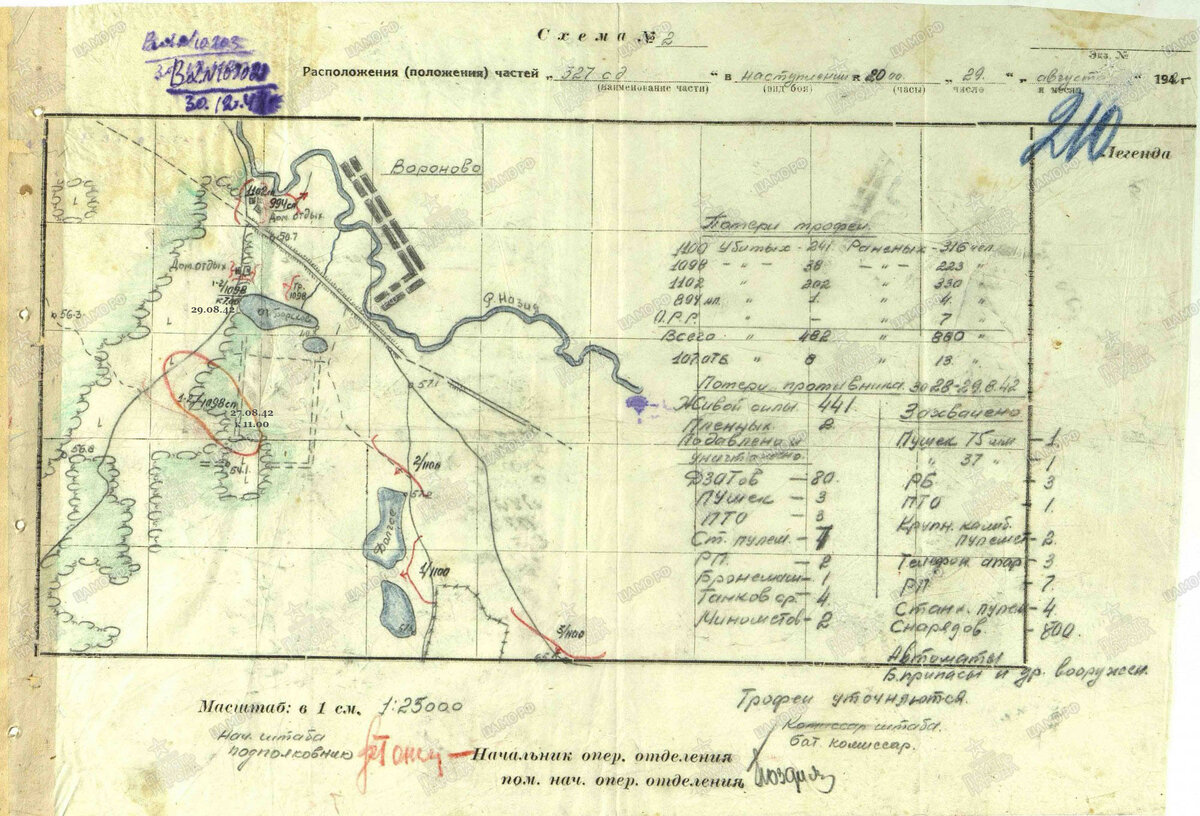 Схема № 2
Экз. №
Расположения (положения) частей „ 327 сд “ в наступлении к 20 00 „ 29. “ „ августа “ 1942 г
(наименование части) (вид боя) (часы) число и месяц
30.12.4
210
Легенда
Вороново
1102
994 сп
Дом. отдых.
50.7
Дом. отдых
1-2/1098
к 7.00
29.08.42
Гр. 1098
р. Назия
56.3
57.1
1-2/1098 сп
27.08.42
к 11.00
56.8
54.1
2/1100
57.2
Долгое
1/1100
3/1100
Потери трофеи.
1100 Убитых - 241. Раненых - 316 чел.
1098 - " - 38 - " - 223 "
1102 " 202 " 330 "
894 мп. " 1. " 4. "
О.Р.Р. " - " 7 "
Всего " 482 " 880 "
107 отб " 6 " 13. "
Потери противника за 28-29.8.42
Живой силы 441.
Пленных 2
Подавлено и
уничтожено.
ДЗОТов - 80.
Пушек - 3
ПТО - 3
Ст. пулем. - 7
РП. - 2
Бронемаш - 1
Танков ср. - 4
Минометов - 2
Захвачено
Пушек 75 мм - 1.
" 37 " - 1
РБ - 3
ПТО - 1.
Крупн. калиб.
пулемет - 2.
Телефон апар - 3
РП - 7.
Станк. пулем - 4.
Снарядов - 800.
Автоматы
Б.припасы и др. вооружен.
Трофеи уточняются.
Масштаб: в 1 см. 1:25000
Нач. штаба
подполковник
Комиссар штаба.
бат. комиссар.
Начальник опер. отделения
пом. нач. опер. отделения